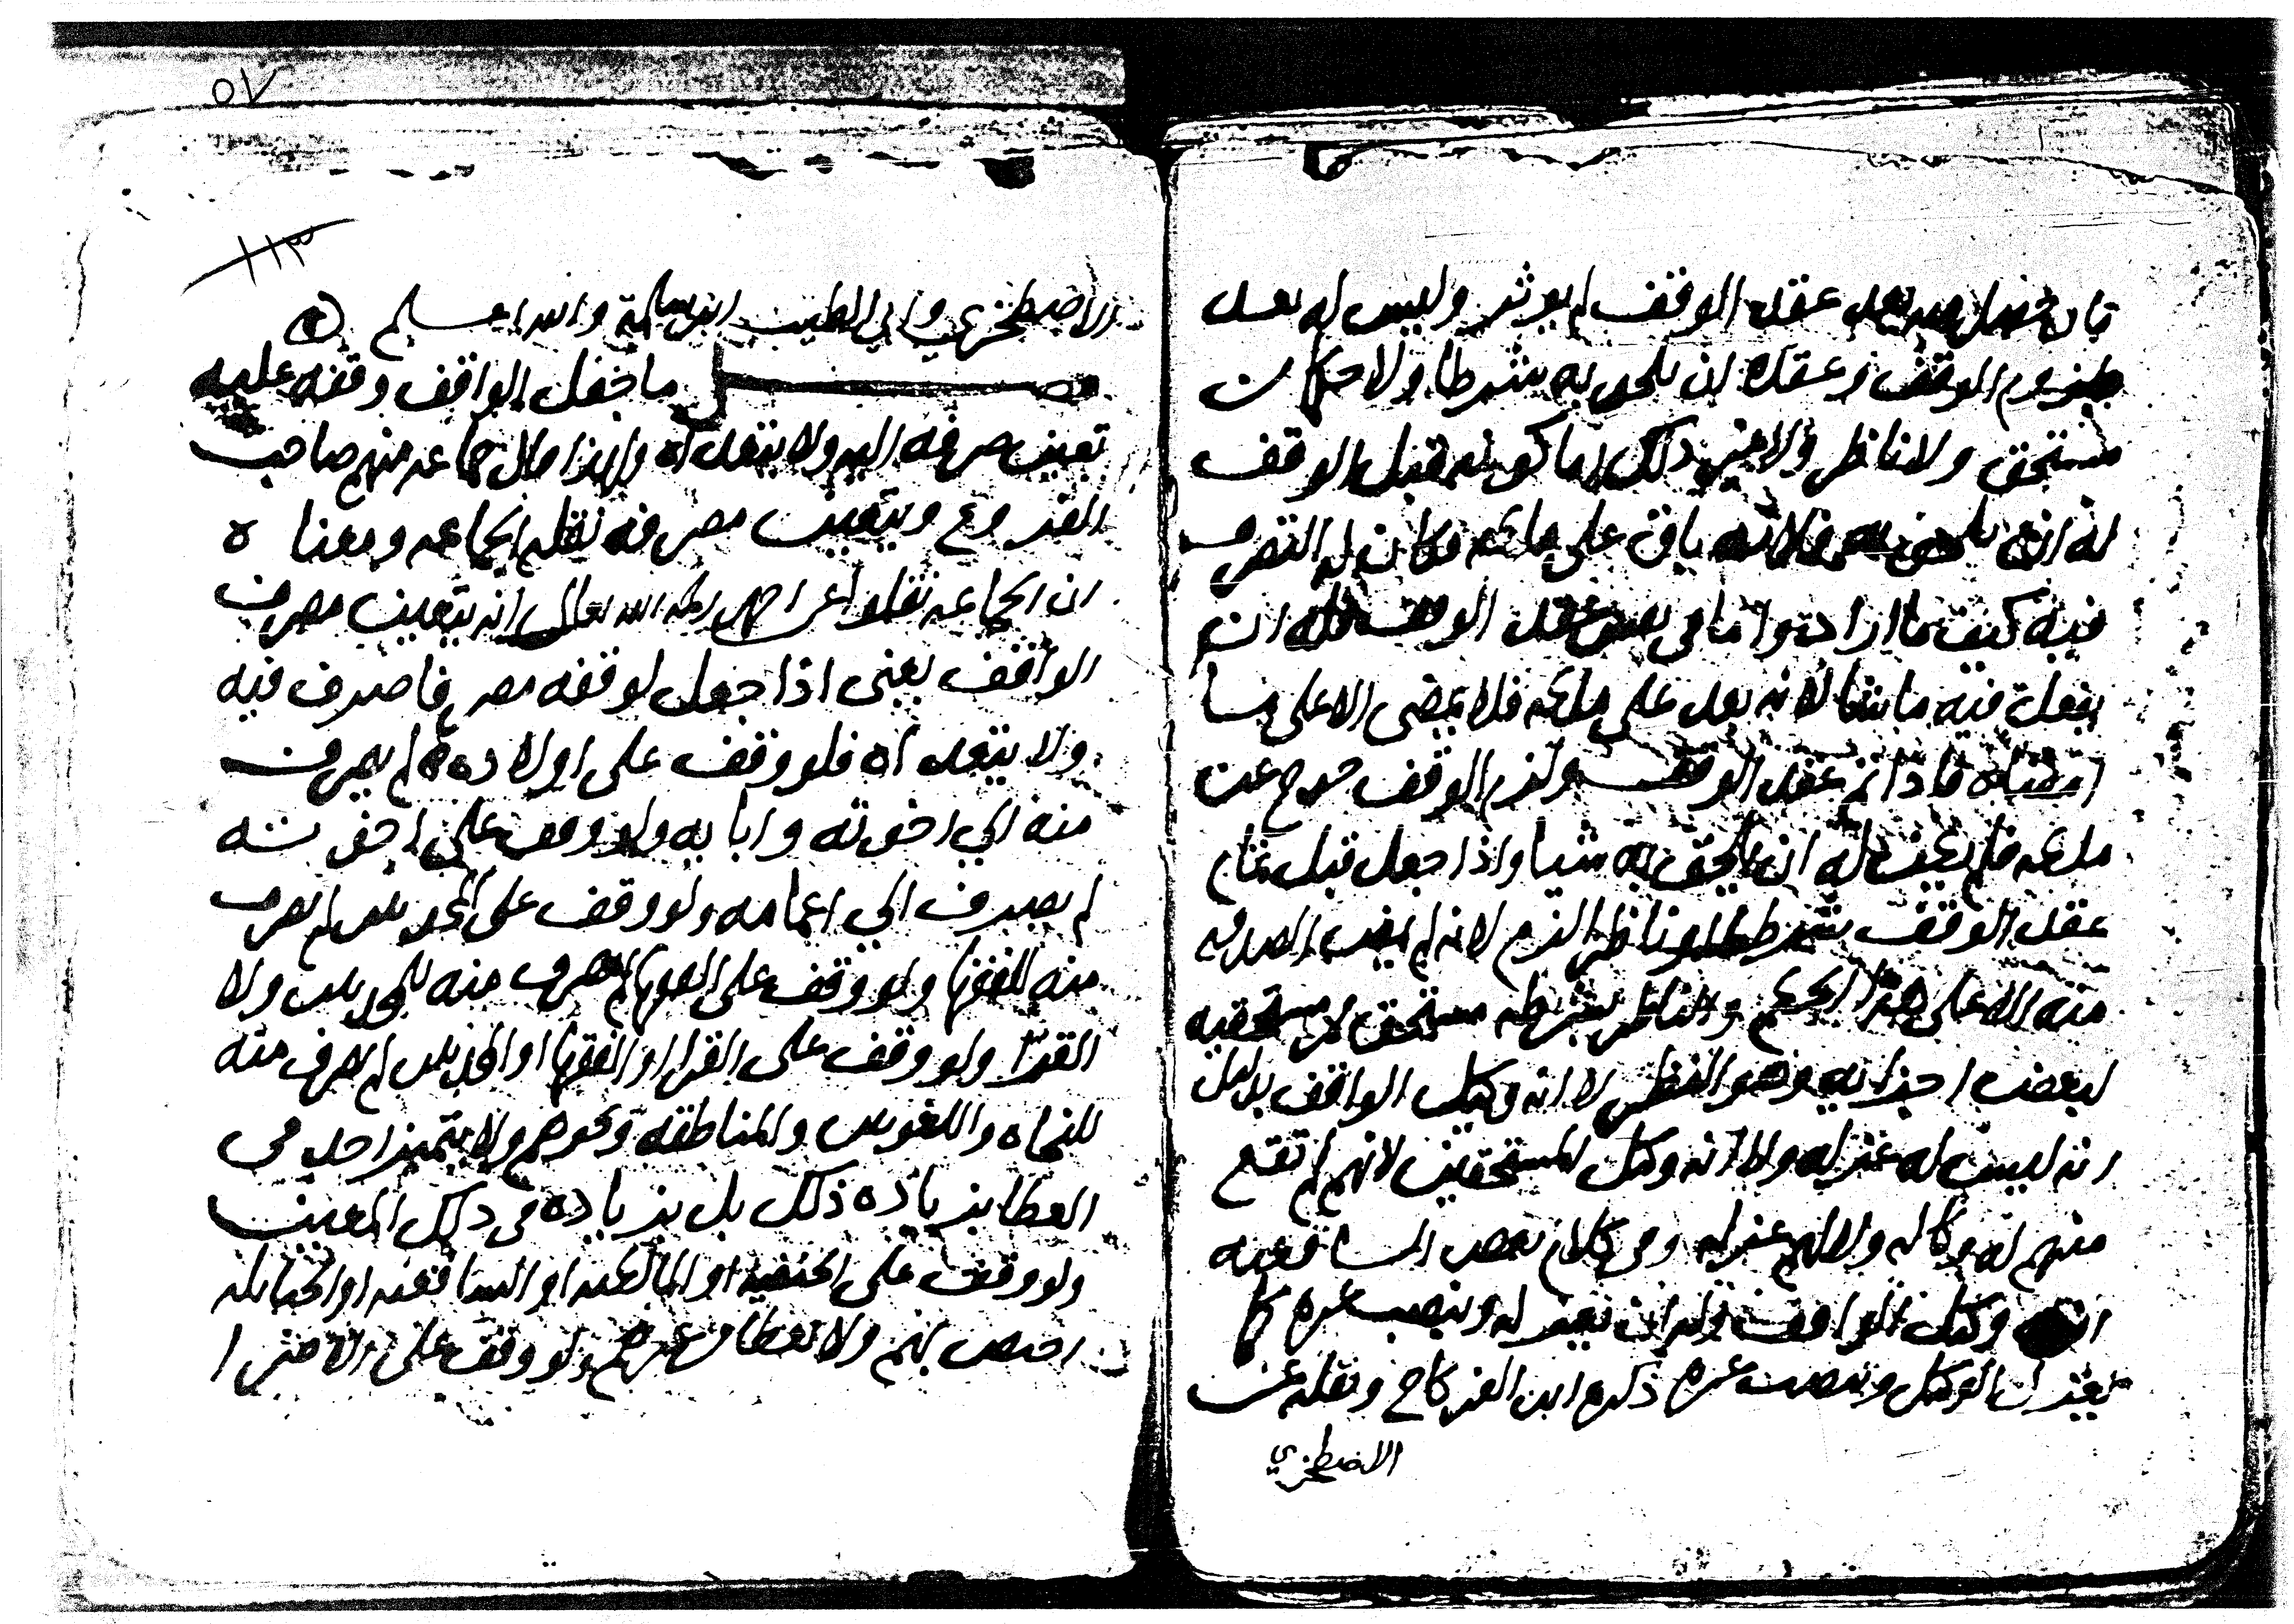 فان فصل بعد عقد الوقف لم يوثر وليس له بعد
لزوم الوقف وعقده ان يلحق به شرطا ولا حكما ن
مستحق ولا ناظر ولا غير ذلك اما كونه قبل الوقف
له ان يلحق به فلانه باق على ملكه فكان له التصرف
فيه كيف ما اراد واما في بعد عقد الوقف فله ان
يفعل فيه ما شا لانه يعد على ملكه فلا يمضى الا على مسا
امضاه فاذا تم عقد الوقف ولزم الوقف خرج عن
ملكه فلم يكن له ان يلحق به شيا واذا جعل قبل تمام
عقد الوقف شرطا او ناظرا لزم لانه لم يمض الصدقه
منه الا على هذا الحكم والناظر بشرطه مستحق لمستحقيه
لبعض اجزائه وهو النظر لا انه وكيل الواقف بدليل
انه ليس له عزله ولا انه وكيل المستحقين لانهم لم تقع
منهم له وكاله ولا لهم عزله وفي كلام بعض الشافعيه
انه وكيل الواقف وله ان يعزله وينصب غيره كما
يعزل الوكيل وينصب غيره ذكره ابن الفركاح ونقله عن
الاصطخري
٥٧
١١٣
الاصطخري وابي الطيب ابن سلمة والله اعلم
فصل ما جعل الواقف وقفه عليه
تعين صرفه اليه ولا يتعداه ولهذا قال جماعه منهم صاحب
الفروع ويتعين مصرفه نقله الجماعه ومعنا ه
ان الجماعه نقلوا عن احمد رحمه الله تعالى انه يتعين مصرف
الواقف يعنى اذا جعل لوقفه مصرفا صرف فيه
ولا يتعداه فلو وقف على اولاده لم يصرف
منه الي اخوته وابايه ولو وقف على اخوته
لم يصرف الي اعمامه ولو وقف على المحدثين لم يصرف
منه للفقها ولو وقف على الفقها لم يصرف منه للمحدثين ولا
القرا ولو وقف على القرا او الفقها او المحدثين لم يصرف منه
للنحاه واللغويين والمناطقه ونحوهم ولا يتميز احد في
العطا بزياده ذلك بل بزياده في ذلك المعين
ولو وقف على الحنفيه او المالكيه او الشافعيه او الحنابله
اختص بهم ولا يعطا من غيرهم ولو وقف على الاقرا